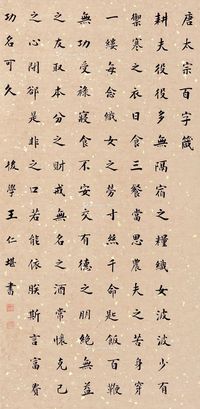 唐太宗百字箴
耕夫役役多無隔宿之糧織女波波少有
禦寒之衣日食三餐當思農夫之苦身穿
一縷每念織女之勞寸絲千命匙飯百鞭
無功受祿寢食不安交有德之朋絕無益
之友取本分之財戒無名之酒常懷克己
之心閉卻是非之口若能依朕斯言富貴
功名可久
後學王仁堪書